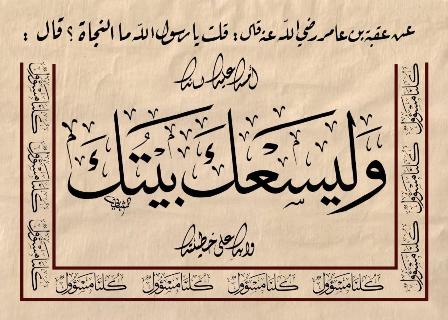 عن عقبة بن عامر رضي الله عنه قال: قلت يا رسول الله ما النجاة؟ قال:
أمسك عليك لسانك
وَليسَعْكَ بَيتُكَ
وابك على خطيئتك
كلنا مسؤول كلنا مسؤول كلنا مسؤول
كلنا مسؤول كلنا مسؤول كلنا مسؤول
كُلنا مَسؤولٌ كُلنا مَسؤولٌ كُلنا مَسؤولٌ كُلنا مَسؤولٌ